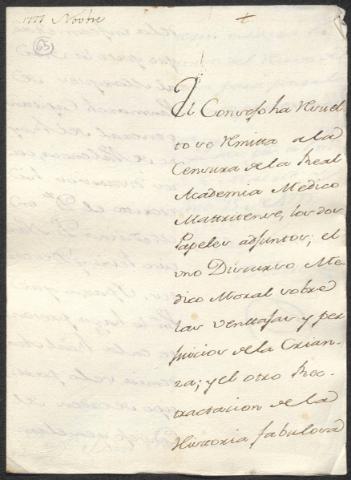 1777 Novbre
65
El Consejo ha resuel
to se remita a la
Censura de la Real
Academia Medico
Matritense, los dos
Papeles adjuntos; el
uno Discurso Me
dico Moral sobre
las ventajas y per
juicios de la Crian
za; y el otro Re
tractacion de la
Historia fabulosa